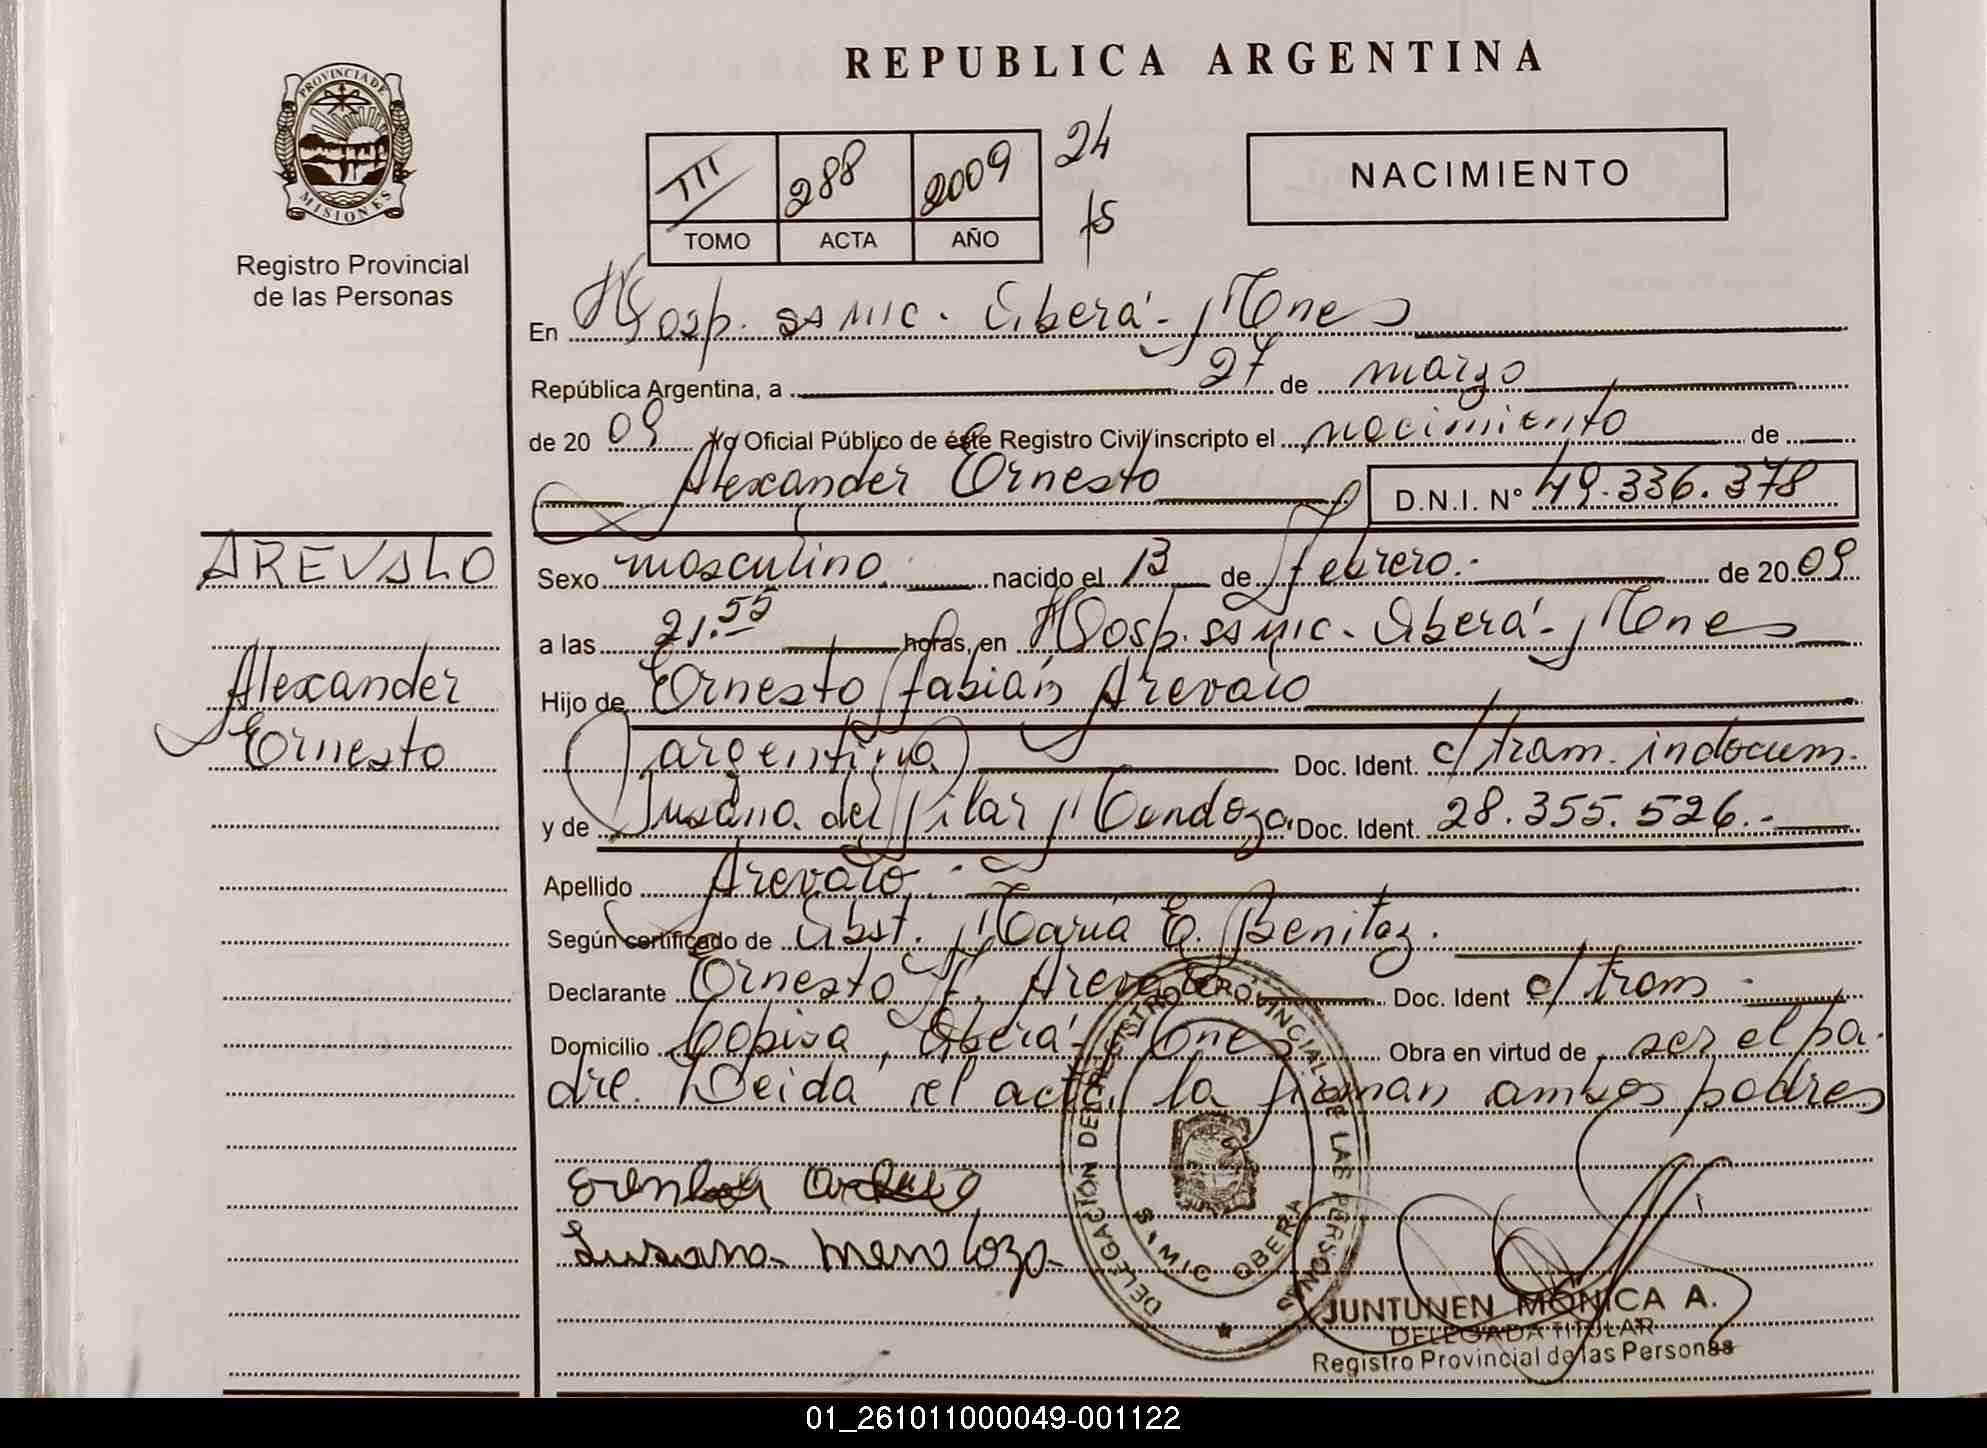 REPUBLICA ARGENTINA
PROVINCIA DE MISIONES
Registro Provincial
de las Personas
III 288 2009 24
TOMO ACTA AÑO fs
NACIMIENTO
En Hosp. SAMIC. Oberá - Mnes
República Argentina, a 27 de marzo
de 2009 yo Oficial Público de éste Registro Civil inscripto el nacimiento de
Alexander Ernesto D.N.I. Nº 49.336.378
AREVALO
Alexander
Ernesto
Sexo masculino nacido el 13 de febrero.- de 2009
a las 21.55 horas, en Hosp. SAMIC. Oberá - Mnes
Hijo de Ernesto Fabián Arevalo
(argentino) Doc. Ident. c/tram. indocum.
y de Susana del Pilar Mendoza Doc. Ident. 28.355.526.-
Apellido Arevalo.-
Según certificado de Obst. María E. Benitez.
Declarante Ernesto F. Arevalo Doc. Ident c/tram.
Domicilio Copisa, Oberá - Mnes Obra en virtud de ser el pa-
dre. Leida el acta, la firman ambos padres
Susana Mendoza
DELEGACIÓN DEL REGISTRO PROVINCIAL DE LAS PERSONAS
SAMIC OBERA
JUNTUNEN MONICA A.
DELEGADA TITULAR
Registro Provincial de las Personas
01_261011000049-001122